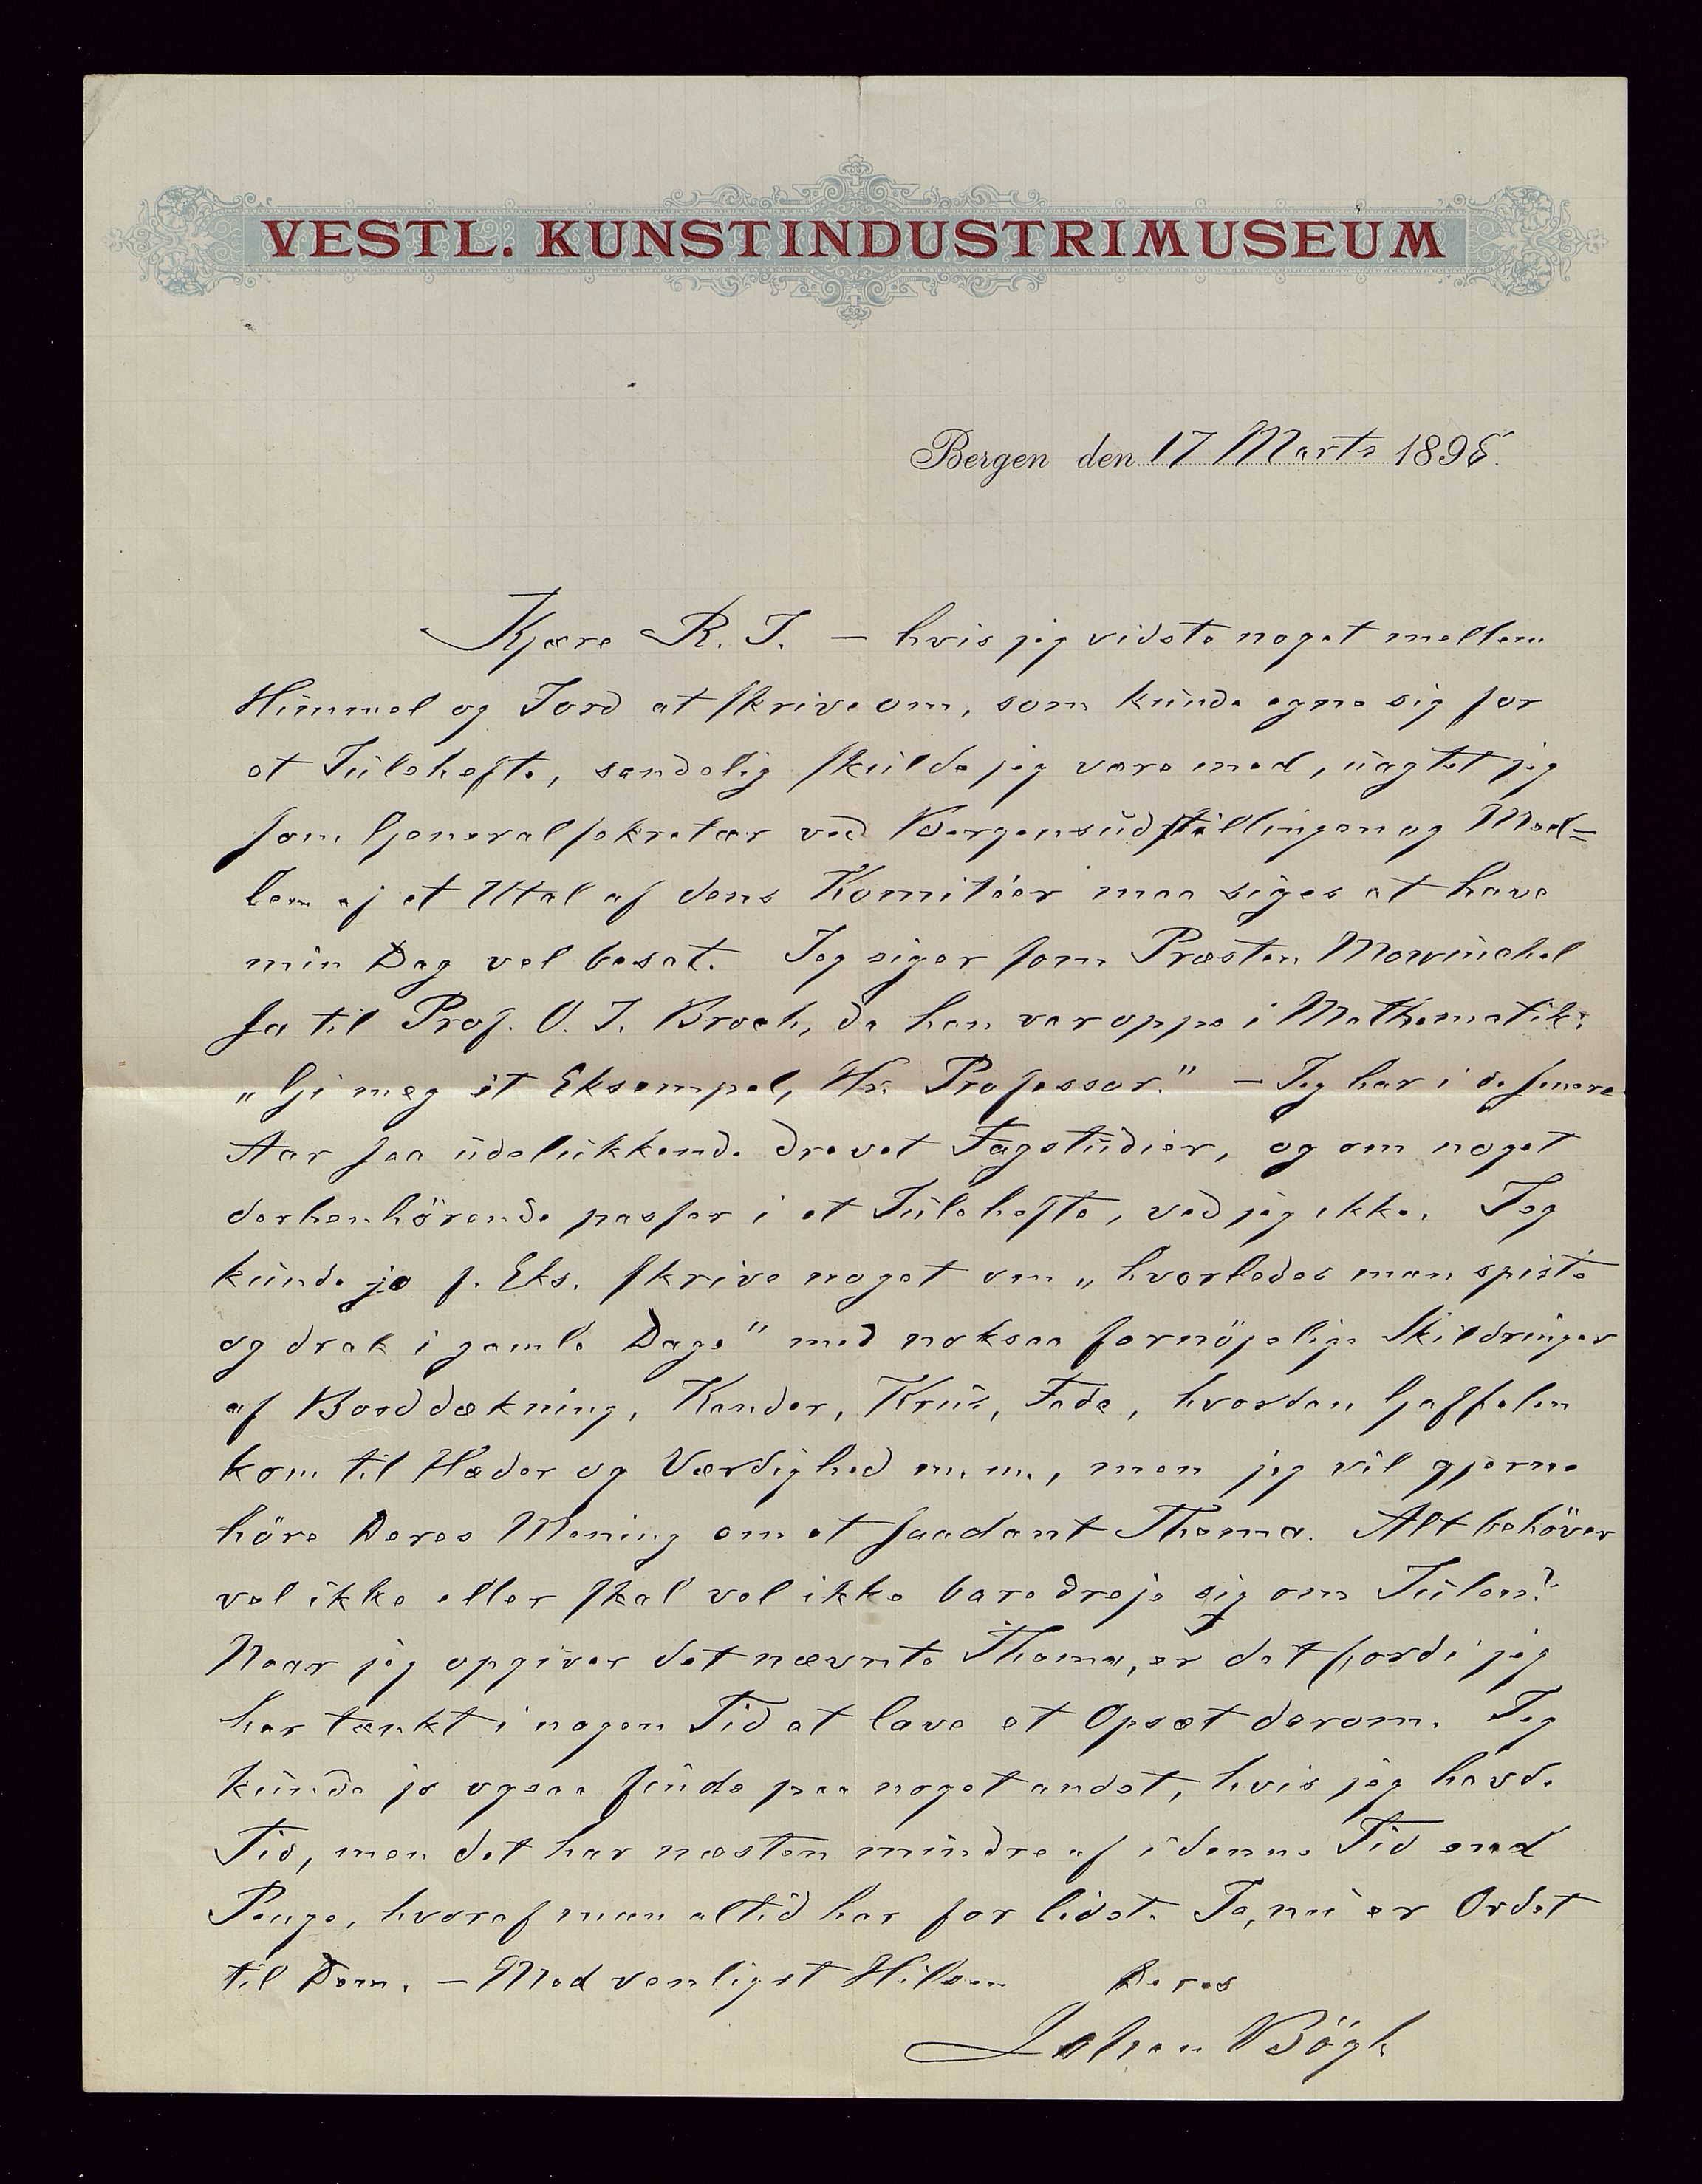 VESTL. KUNSTINDUSTRIMUSEUM
Bergen den 17 Marts 1896.
Kjære R. J. — hvis jeg vidste noget mellem
Himmel og Jord at skrive om, som kunde egne sig for
et Julehefte, sandelig skulde jeg være med, uagtet jeg
som Generalsekretær ved Bergensudstillingen og Med=
lem af et Utal af dens Komitéer maa siges at have
min Dag vel besat. Jeg siger som Præsten Mowinckel
sa til Prof. O. J. Broch, da han var oppe i Mathematik:
„Gi meg et Eksempel, Hr. Professor." — Jeg har i de senere
Aar saa udelukkende drevet Fagstudier, og om noget
derhenhörende passer i et Julehefte, ved jeg ikke. Jeg
kunde jo f. Eks. skrive noget om „hvorledes man spiste
og drak i gamle Dage" med noksaa fornöjelige Skildringer
af Borddækning, Kander, Krus, Fade, hvordan Gaffelen
kom til Hæder og Værdighed m. m., men jeg vil gjerne
höre Deres Mening om et saadant Thema. Alt behöver
vel ikke eller skal vel ikke bare dreje sig om Julen?
Naar jeg opgiver det nævnte Thema, er det fordi jeg
har tænkt i nogen Tid at lave et Opsæt derom. Jeg
kunde jo ogsaa finde paa noget andet, hvis jeg havde
Tid, men det har næsten mindre af i denne Tid end
Penge, hvoraf man altid har for lidet. Ja, nu er Ordet
til Dem. — Med venligst Hilsen Deres
Johan Bögh